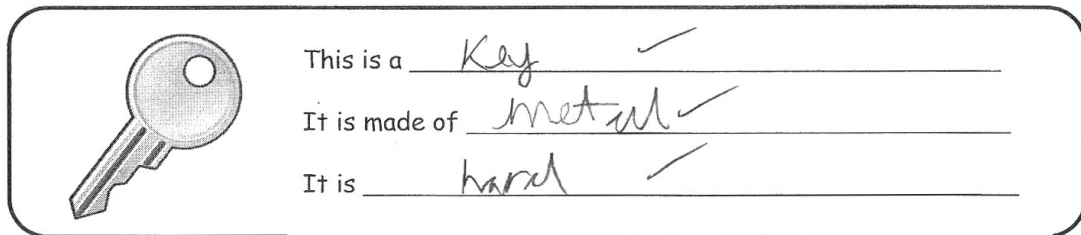 This is a Key
It is made of metal
It is hard